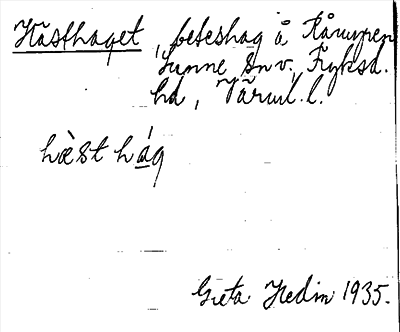 Hästhaget, beteshag å Kårungen
Sunne sn v. Fryksd.
hd, Värml. l.
hæst hág
Greta Hedin 1935.